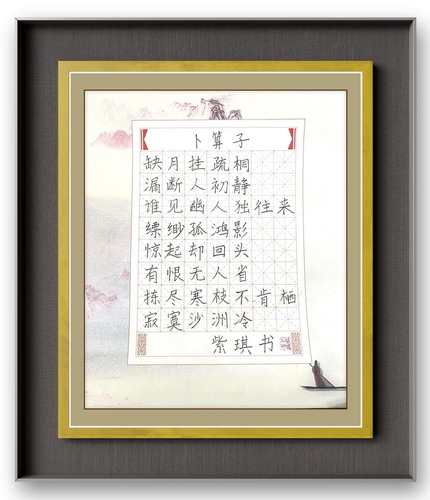 卜算子
缺月挂疏桐
漏断人初静
谁见幽人独往来
缥缈孤鸿影
惊起却回头
有恨无人省
拣尽寒枝不肯栖
寂寞沙洲冷
紫琪书